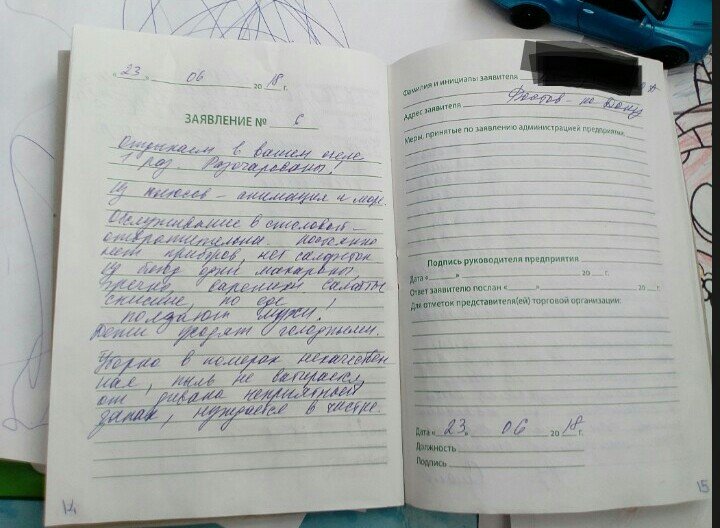 « 23 » 06 20 18 г.
ЗАЯВЛЕНИЕ № 6
Отдыхаем в вашем отеле
1 раз. Разочарованы!
Из плюсов – анимация и море.
Обслуживание в столовой –
отвратительны. Постоянно
нет приборов, нет салфеток
Из блюд одни макароны,
гречка, вареники салаты
кислые, по еде
ползают мухи!
Дети уходят голодными.
Уборка в номерах некачествен
ная, пыль не вытирается,
от дивана неприятный
запах, нуждается в чистке.
14
Фамилия и инициалы заявителя
Адрес заявителя Ростов-на-Дону
Меры, принятые по заявлению администрацией предприятия
Подпись руководителя предприятия
Дата « » 20 г.
Ответ заявителю послан « » 20 г.
Для отметок представителя(ей) торговой организации:
Дата « 23 » 06 20 18 г.
Должность
Подпись
15